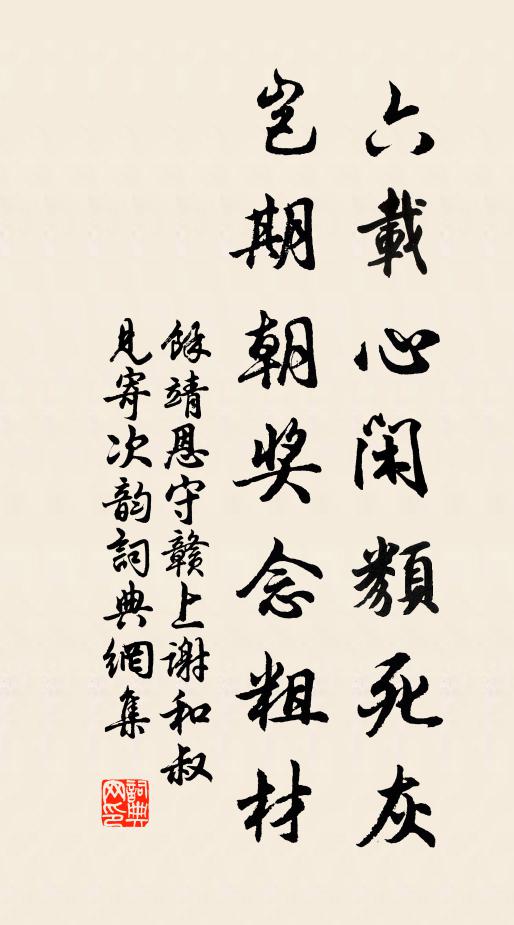 六載心閑類死灰
豈期朝奬念粗材
餘靖恩守贛上谢和叔
見寄次韵詞典網集
詞典
网印